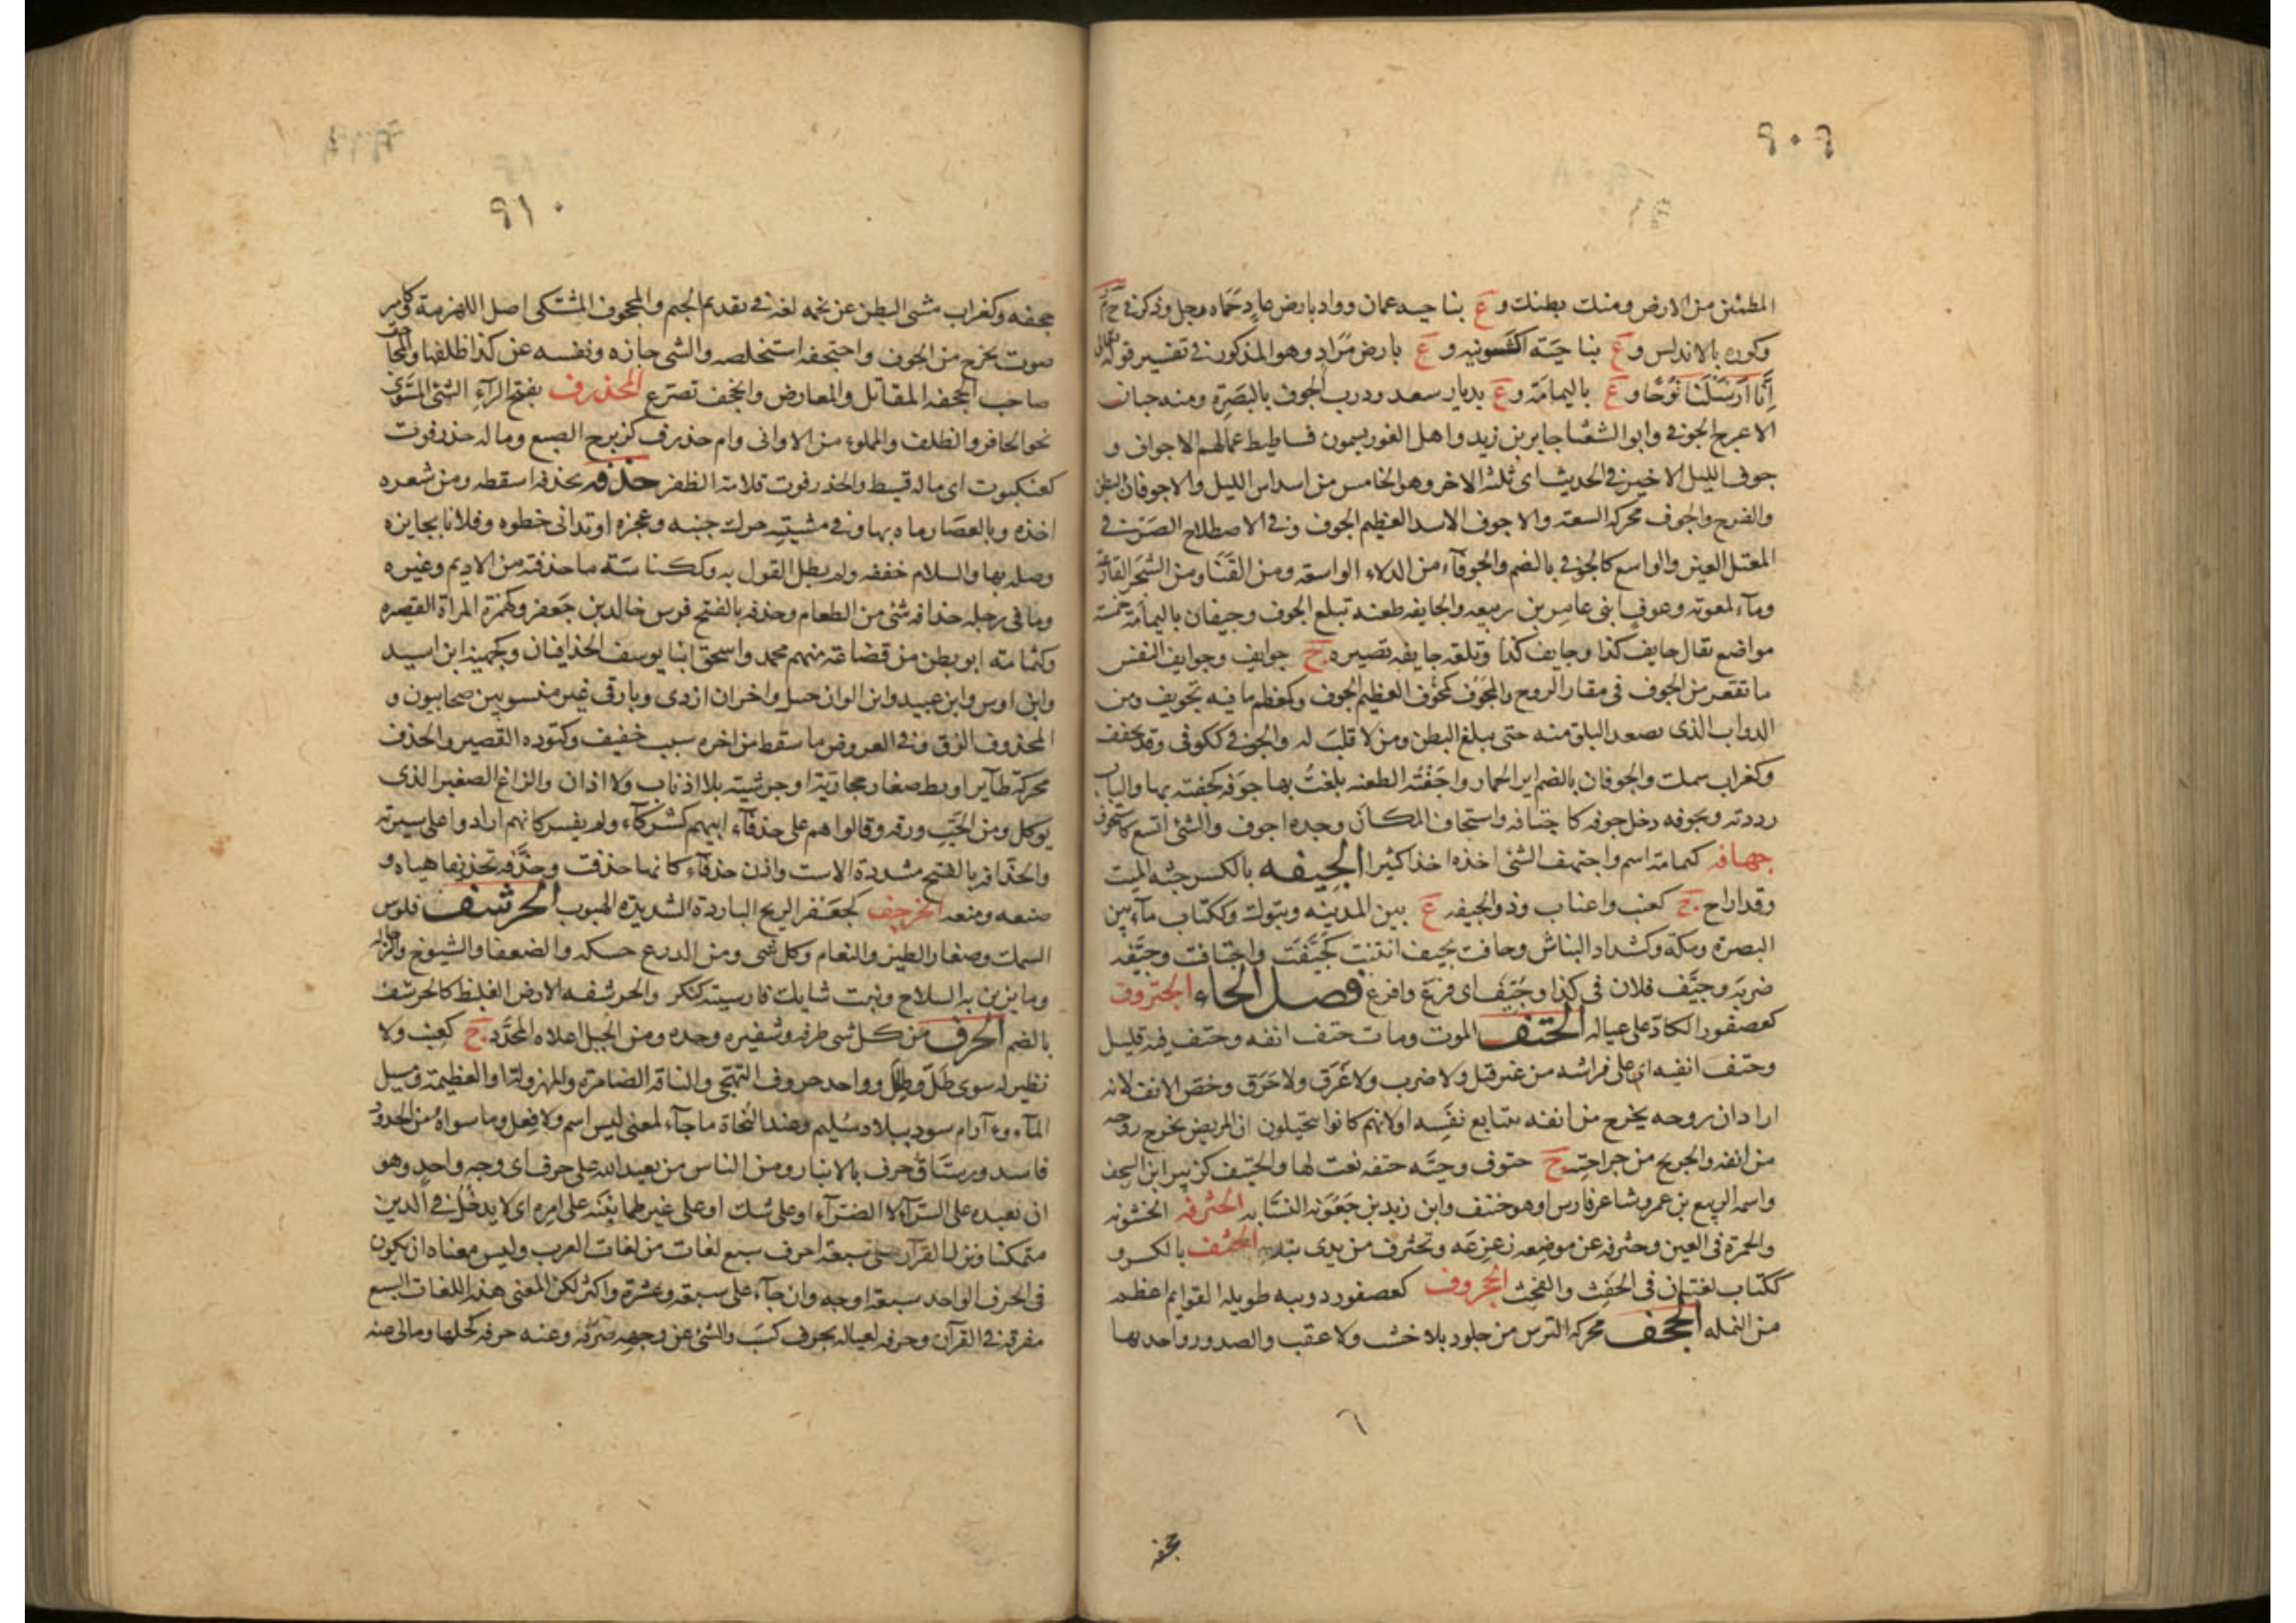 ٩٠٩
المطمئن من الارض ومنك بطنك و ع بناحيه عمان وواد بارض عاد حماه رجل وذكر فى ح م ر
وكوره بالاندلس و ع بناحيه اكشونيه و ع بارض مراد وهو المذكور فى تفسير قوله تعالى
انا ارسلنا نوحا و ع باليمامة و ع بديار سعد ودرب الجوف بالبصرة ومنه حيان
الاعرج الجوفى وابو الشعثا جابر بن زيد واهل الغور يسمون فساطيط عمالهم الاجواف و
جوف الليل الاخير فى الحديث اى ثلثه الاخر وهو الخامس من اسداس الليل والاجوفان البطن
والفرج والجوف محركه السعة والاجوف الاسد العظيم الجوف وفى الاصطلاح الصرفى
المعتل العين والواسع كالجوفى بالضم والجوفاء من الدلاء الواسعة ومن القنا ومن الشجر الفارغة
وماء لمعوية وعوف ابنى عامر بن ربيعه والجايفه طعنه تبلغ الجوف وجيفان باليمامة خمسة
مواضع يقال جايف كذا وجايف كذا وتلعه جايفه قعيره ج جوايف وجوايف النفس
ما تقعر من الجوف فى مقار الروح والمجوف كمخوف العظيم الجوف وكمعظم ما فيه تجويف ومن
الدواب الذى يصعد البلق منه حتى يبلغ البطن ومن لا قلب له والجوفى ككوفى وقد يخفف
وكغراب سمك والجوفان بالضم اير الحمار واجفته الطعنه بلغت بها جوفه كجفته بها والباب
رددته وتجوفه دخل جوفه كاجتافه واستجاف المكان وجده اجوف والشئ اتسع كاستجوف
جهافه كثمامة اسم واجتهف الشئ اخذه اخذا كثيرا الجيفه بالكسر جثه الميت
وقد اراح ج كعنب واعناب وذو الجيفه ع بين المدينه وتبوك وككتاب ماء بين
البصرة ومكة وكشداد النباش وجافت تجيف انتنت كجيفت واجتافت وجيفه
ضربه وجيف فلان فى كذا وجيف اى فزع وافزع فصل الحاء الحتروف
كعصفور الكاد على عياله الحتف الموت ومات حتف انفه وحتف فيه قليل
وحتف انفيه اى على فراشه من غير قتل ولا ضرب ولا غرق ولا حرق وخص الانف لانه
اراد ان روحه يخرج من انفه بتتابع نفسه اولانهم كانوا يتخيلون ان المريض يخرج روحه
من انفه والجريح من جراحته ج حتوف وحية حتفه نعت لها والحتيف كزبير ابن السجف
واسمه الربيع بن عمرو شاعر فارس اوهو حنتف وابن زيد بن جعونه النسابه الحثرفه الخشونه
والحمرة فى العين وحثرفه عن موضعه زعزعه وتحثرف من يدى تبدد الحثف بالكسر و
ككتاب لغتان فى الحفث والفحث الحجروف كعصفور دويبه طويلة القوايم اعظم
من النمله الحجف محركه الترس من جلود بلا خشب ولا عقب والصدور واحدتها
حجفه
٩١٠
حجفه وكغراب مشى البطن عن تخمه لغة فى تقديم الجيم والمحجوف المشتكى اصل اللهزمة كامير
صوت يخرج من الجوف واحتجفه استخلصه والشى حازه ونفسه عن كذا ظلفها والمحاجف
صاحب الحجفه المقاتل والمعارض وانحجف تضرع المحذرف بفتح الراء الشئ المسوى
نحو الحافر والظلف والمملوء من الاوانى وام حذرف كزبرج الضبع وما له حذرفوت
كعنكبوت اى ماله قسيط والحذرفوت قلامة الظفر حذفه يحذفه اسقطه ومن شعره
اخذه وبالعصا رماه بها وفى مشيته حرك جنبه وعجزه اوتدانى خطوه وفلانا بجايزه
وصله بها والسلام خففه ولم يطل القول به وككناسة ما حذفته من الاديم وغيره
وما فى رحله حذافه شئ من الطعام وحذفه بالفتح فرس خالد بن جعفر وكهمزة المراة القصيره
وكثمامه ابو بطن من قضاعة منهم محمد واسحق ابنا يوسف الحذافيان وكجهينه ابن اسيد
وابن اوس وابن عبيد وابن اليمان حسل واخران ازدى وبارقى غير منسوبين صحابيون و
المحذوف الزق وفى العروض ما سقط من اخره سبب خفيف وكتوده القصير والحذف
محركة طاير او بط صغار حجازية او جرشية بلا اذناب ولا اذان والزاغ الصغير الذى
يوكل ومن الحب ورقه وقالوا هم على حذفاء ابيهم كشركاء ولم يفسر كانهم ارادوا على سيرته
والحذافه بالفتح مشددة الاست واذن حذفاء كانها حذفت وحذفه تحذيفا هياه و
صنعه ومنعه الحرجف كجعفر الريح الباردة الشديدة الهبوب الحرشف فلوس
السمك وصغار الطير والنعام وكل شى ومن الدرع حسكه والضعفا والشيوخ والرجاله
وما يزين به السلاح ونبت شايك فارسيته كنكر والحرشفه الارض الغليظ كالحرشف
بالضم الحرف من كل شى طرفه وشفيره وحده ومن الجبل اعلاه المحدد ج كعنب ولا
نظير له سوى طل وطلل وواحد حروف التهجى والناقه الضامرة والمهزولة او العظيمة ومسيل
الماء و ع آرام سود ببلاد سليم وعند النحاة ما جاء لمعنى ليس اسم ولا فعل وما سواه من الحدود
فاسد ورستاق حرف بالانبار ومن الناس من يعبد الله على حرف اى وجه واحد وهو
ان يعبده على السراء لا الضراء او على شك او على غير طمانينه على امره اى لا يدخل فى الدين
متمكنا ونزل القرآن على سبعة احرف سبع لغات من لغات العرب وليس معناه ان يكون
فى الحرف الواحد سبعة اوجه وان جاء على سبعة وعشرة واكثر لكن المعنى هذه اللغات السبع
مفرقة فى القرآن وحرف لعياله يحرف كسب والشئ عن وجهه صرفه وعنه حرفه كحلها ومالى عنه